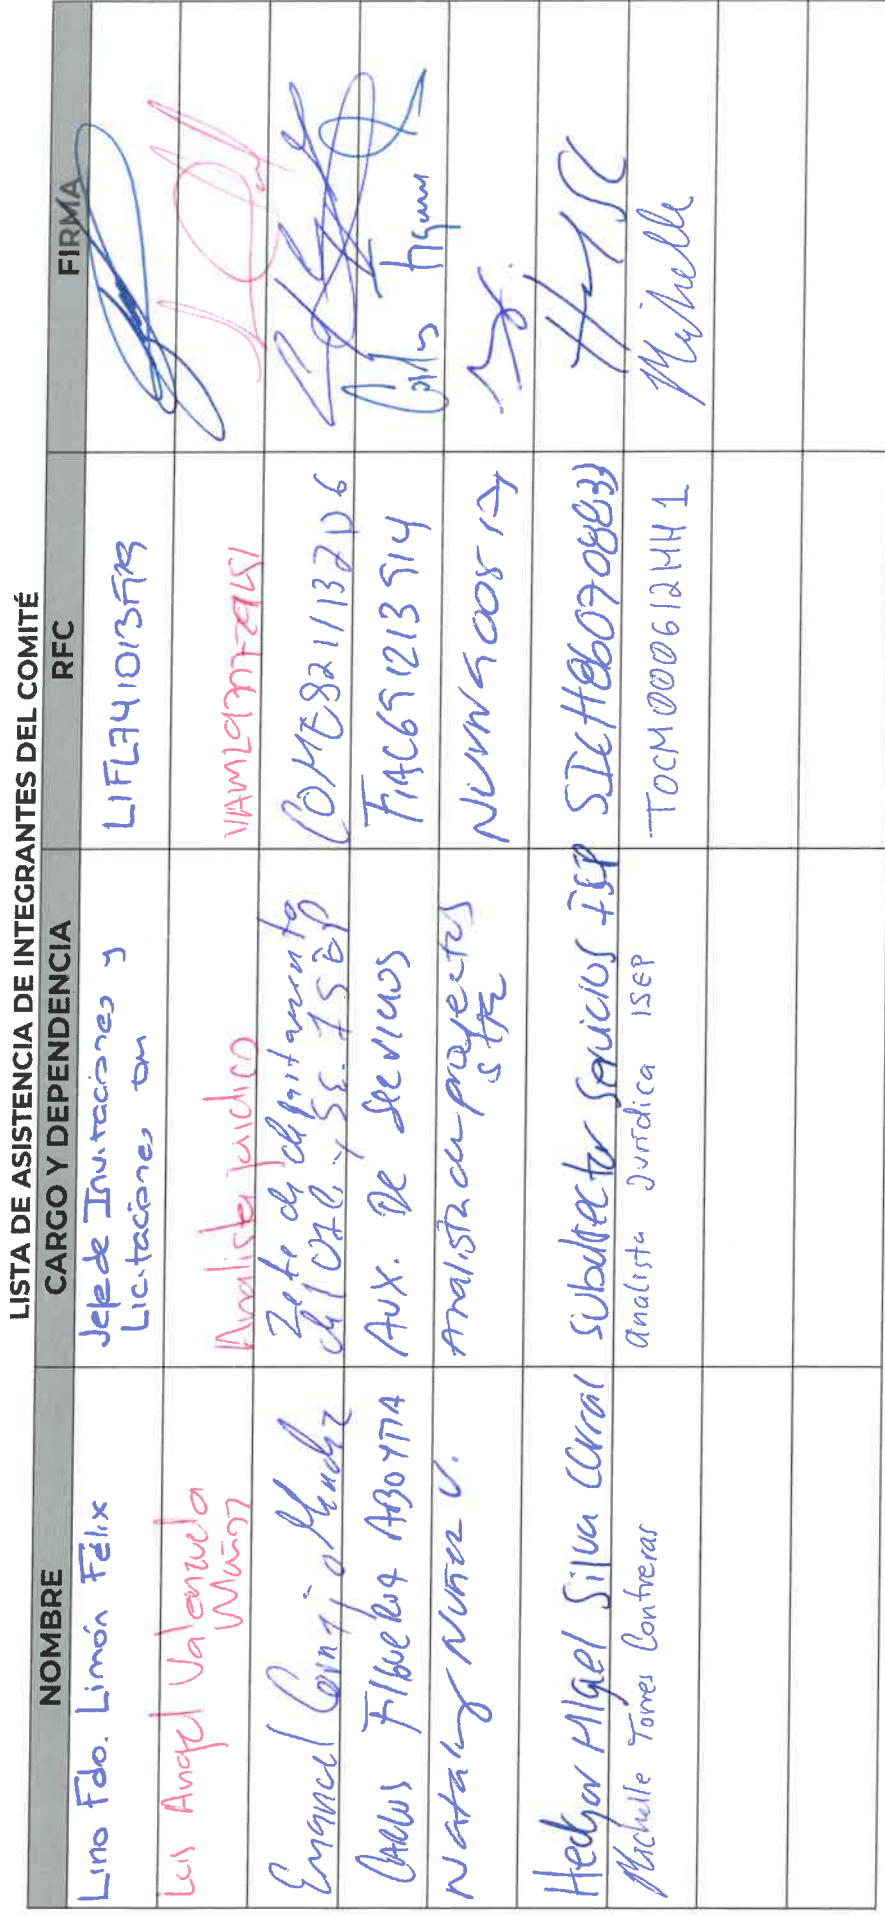 LISTA DE ASISTENCIA DE INTEGRANTES DEL COMITÉ
NOMBRE CARGO Y DEPENDENCIA RFC FIRMA
Lino Fdo. Limón Félix Jefe de Invitaciones y
Licitaciones OM LIFL741013
Luis Angel Valenzuela
Muñoz Analista Juridico
Emanuel Cornejo Mendez Jefe de departamento
ISEP COME821113
Carlos Figueroa Aboytia Aux. De Servicios FIAC691213514 Carlos Figueroa
Nataly Nuñez V. Analista de proyectos
Hedger Miguel Silva Corral Subdirector Servicios ISEP SICH860708
Michelle Torres Contreras analista Jurídica ISEP TOCM000612HH1 Michelle